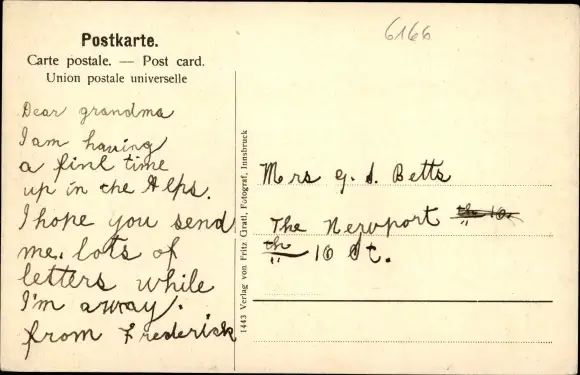 6166
Postkarte.
Carte postale. — Post card.
Union postale universelle
Dear grandma
I am having
a fine time
up in the Alps.
I hope you send
me. lots of
letters while
I'm away.
from Frederick
1443 Verlag von Fritz Gratl, Fotograf, Innsbruck
Mrs G. S. Betts
The Newport
th 10 St.